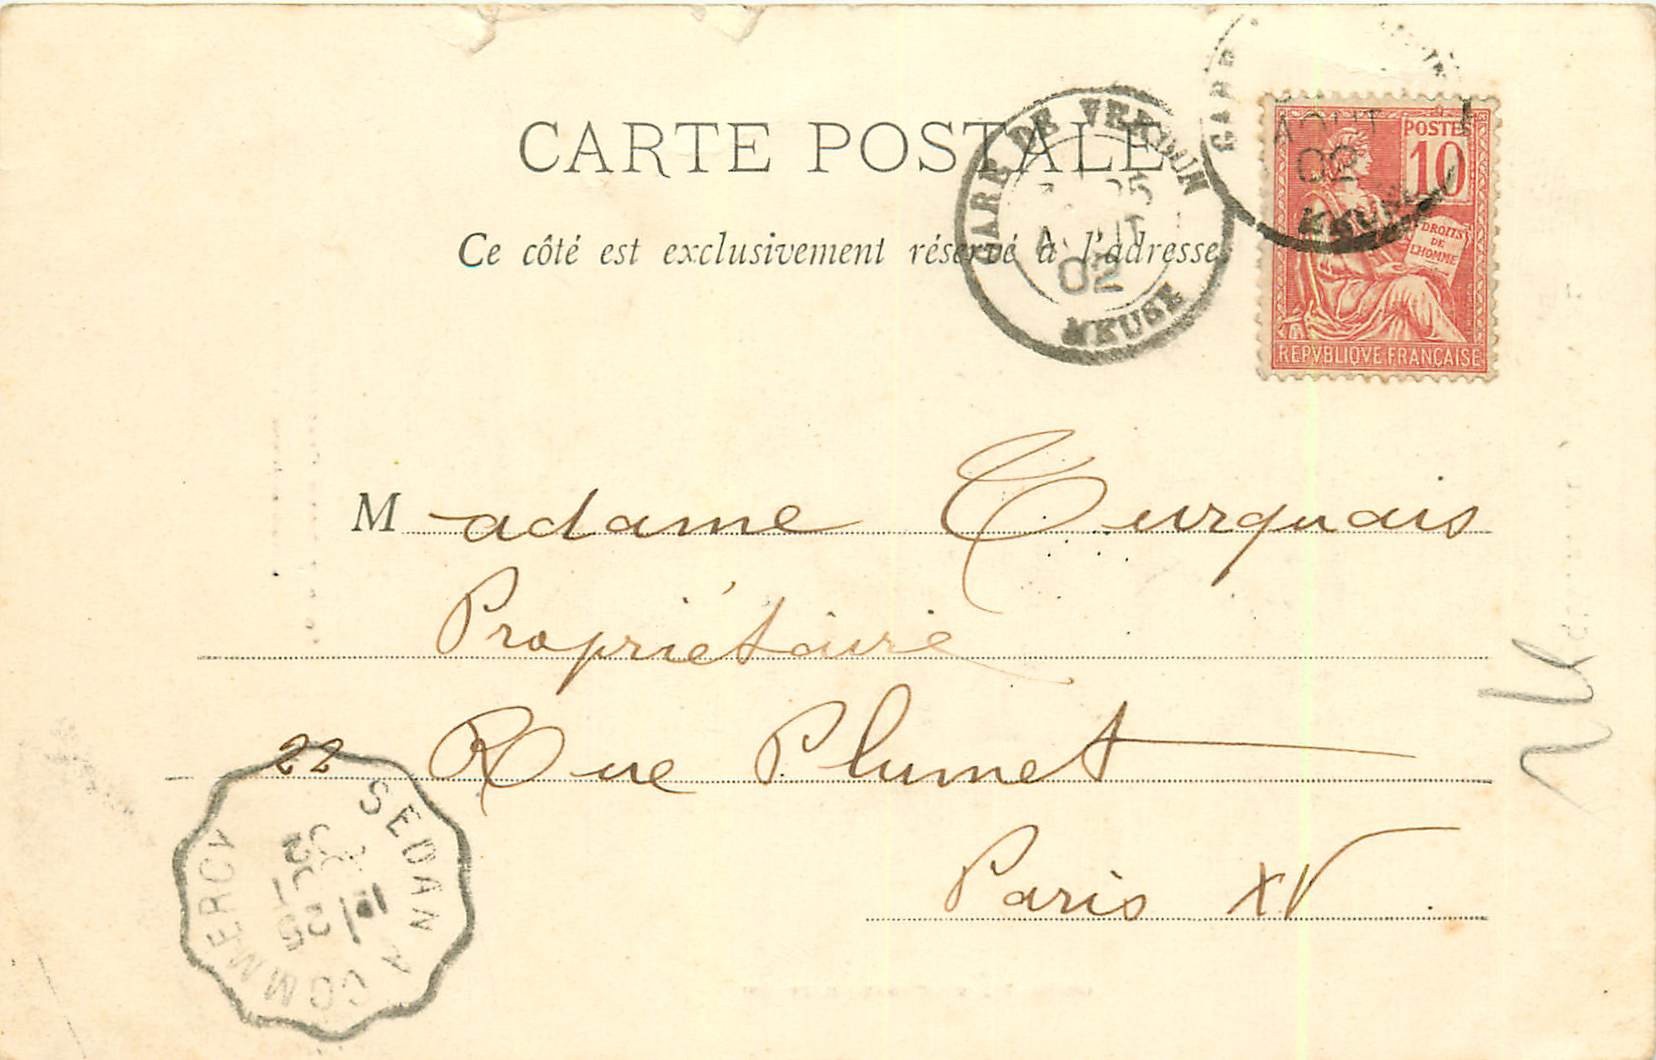 CARTE POSTALE
Ce côté est exclusivement réservé à l'adresse
GARE DE VERDUN
25
AOUT
02
MEUSE
GARE
AOUT
02
MEUSE
POSTES
10
DROITS
DE
L'HOMME
REPVBLIQVE FRANÇAISE
Madame Turquais
Propriétaire
22 Rue Plumet
Paris XV.
SEDAN A COMMERCY
1E
25